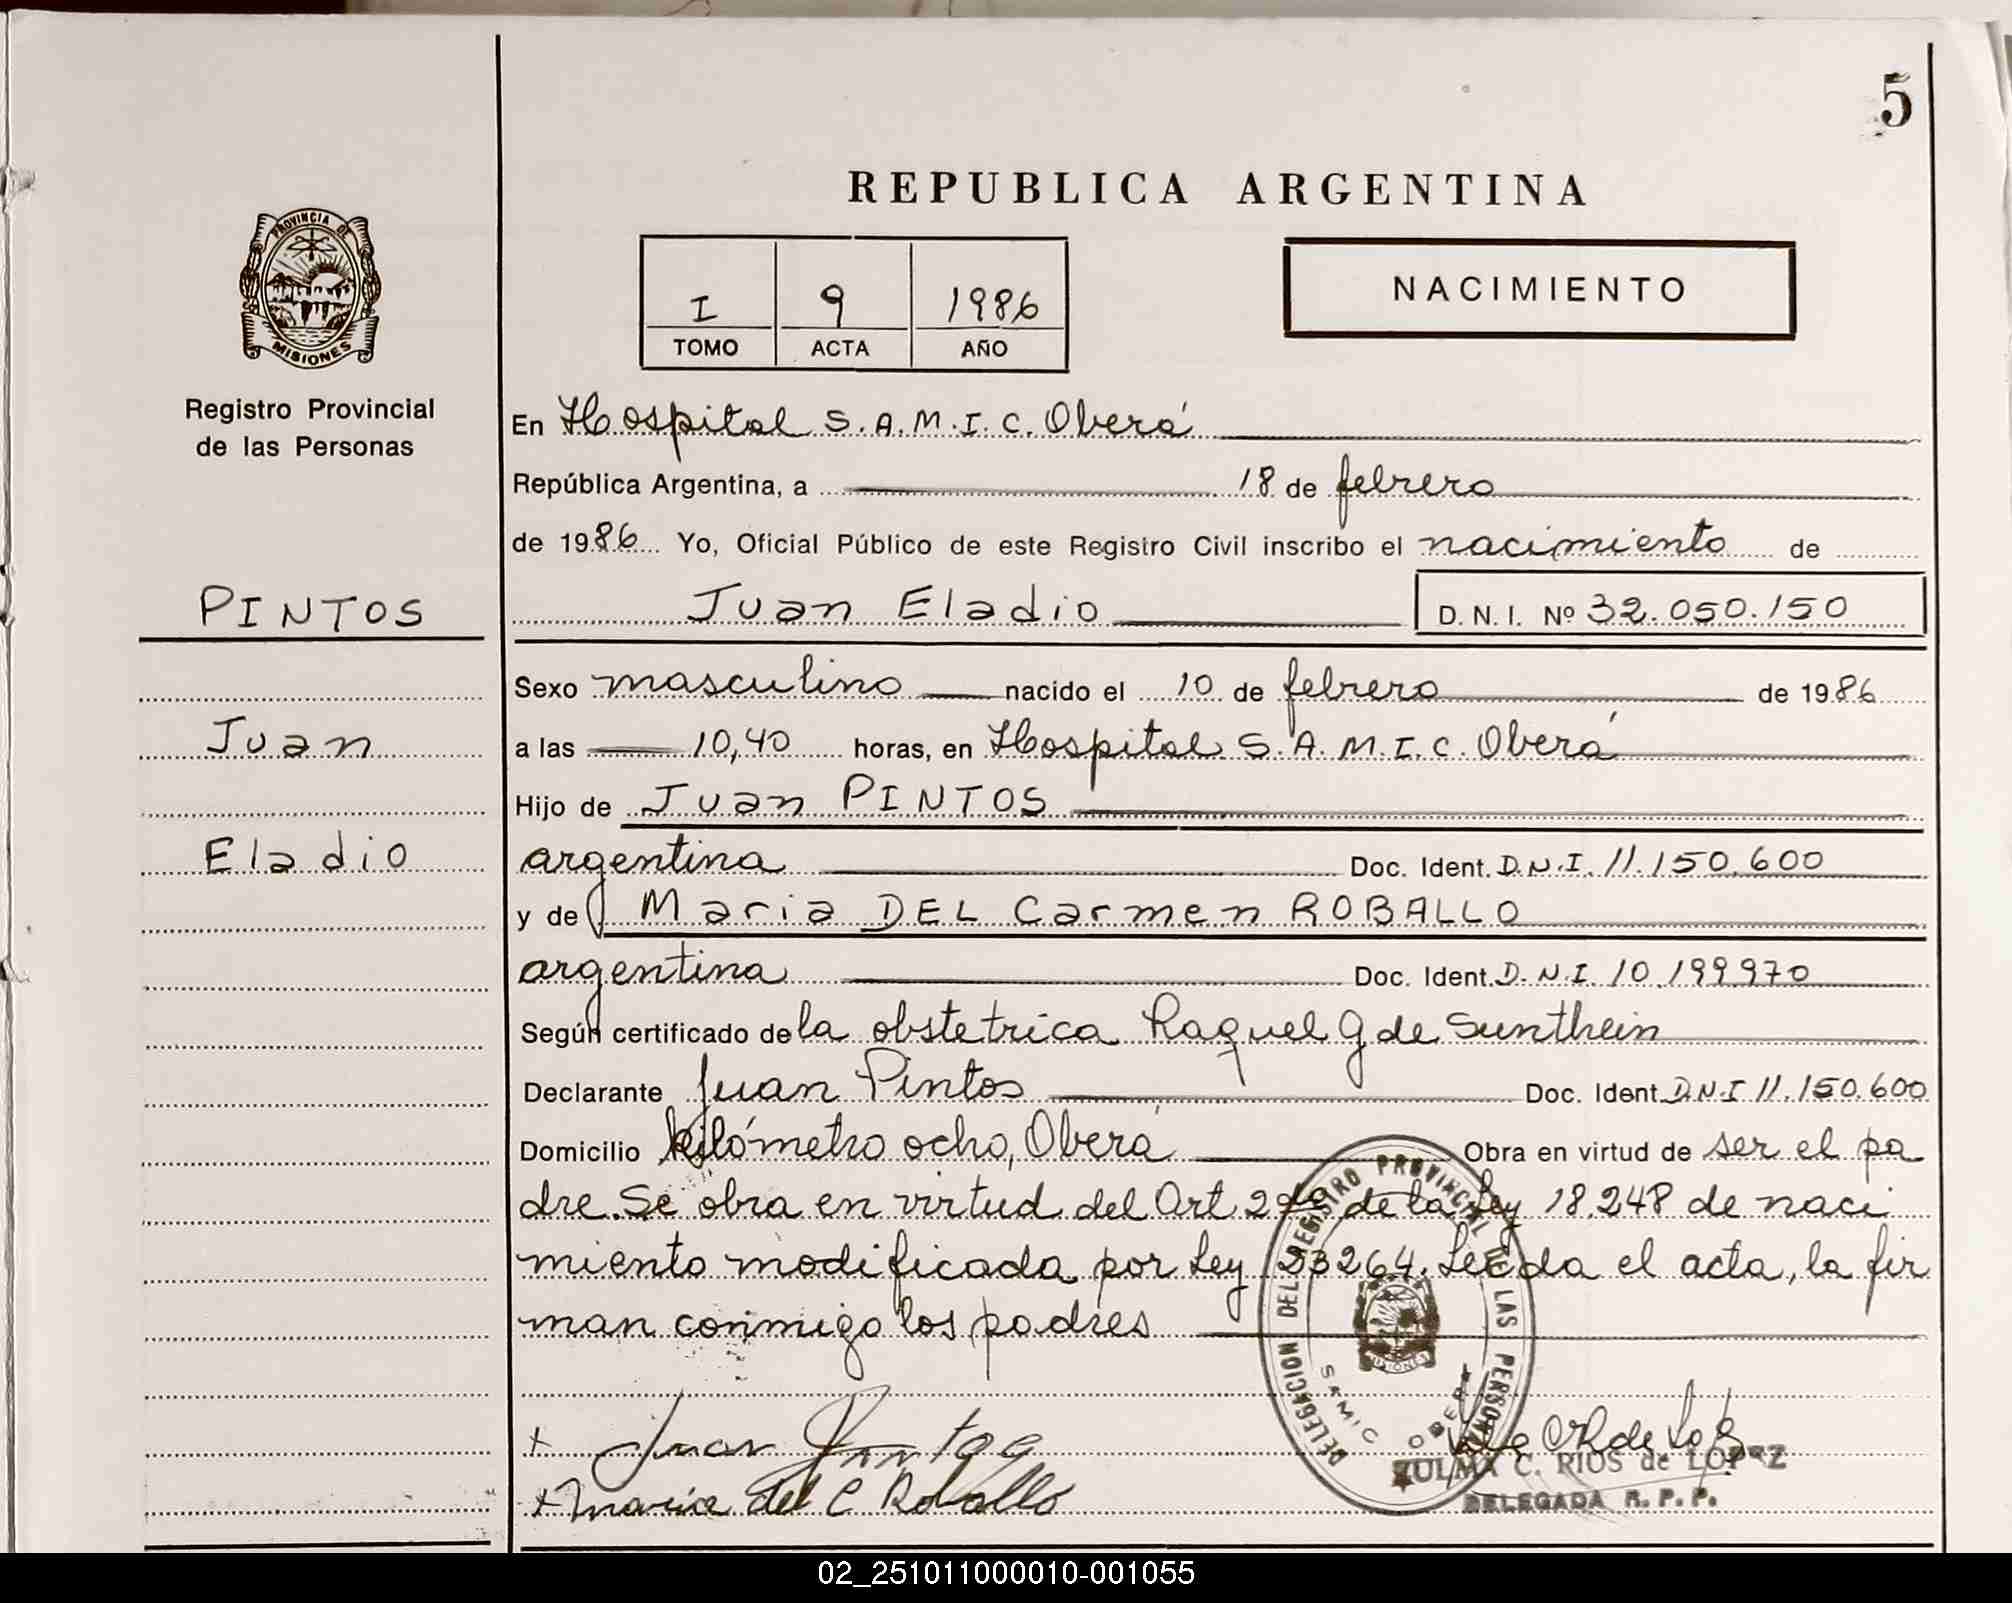 5
REPUBLICA ARGENTINA
PROVINCIA DE
MISIONES
Registro Provincial
de las Personas
I 9 1986
TOMO ACTA AÑO
NACIMIENTO
En Hospital S.A.M.I.C. Oberá
República Argentina, a 18 de febrero
de 1986 Yo, Oficial Público de este Registro Civil inscribo el nacimiento de
PINTOS
Juan Eladio D.N.I. Nº 32.050.150
Sexo masculino nacido el 10 de febrero de 1986
Juan
a las 10,40 horas, en Hospital S.A.M.I.C. Oberá
Hijo de Juan PINTOS
Eladio
argentina Doc. Ident. D.N.I. 11.150.600
y de Maria DEL Carmen ROBALLO
argentina Doc. Ident. D.N.I. 10.199970
Según certificado de la obstetrica Raquel G de Sunthein
Declarante Juan Pintos Doc. Ident. D.N.I 11.150.600
Domicilio kilómetro ocho, Oberá Obra en virtud de ser el pa
dre. Se obra en virtud del Art 2 de la Ley 18.248 de naci
miento modificada por Ley 23264. Leída el acta, la fir
man conmigo los padres
DELEGACION DEL REGISTRO PROVINCIAL DE LAS PERSONAS
SAMIC OBERA
MISIONES
+ Juan Pintos
+ Maria del C. Roballo
ZULMA C. RIOS de LOPEZ
DELEGADA R.P.P.
02_251011000010-001055